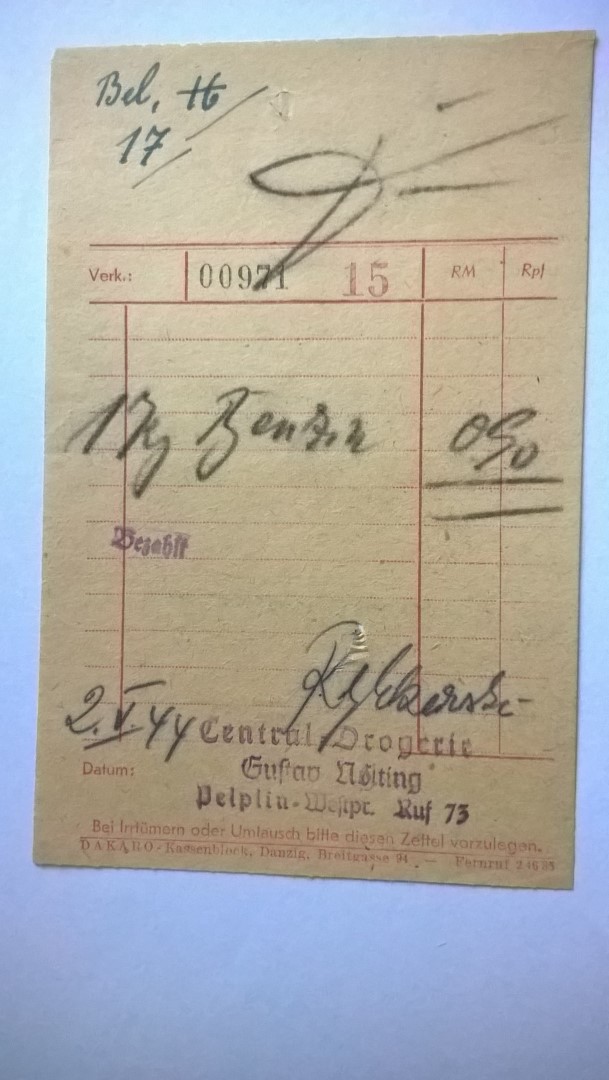 Bel. 16
17
Verk.: 00971 15 RM Rpf
1 Kg Benzin 0 90
Bezahlt
2.V.44
Central-Drogerie
Gustav Nölting
Pelplin-Westpr. Ruf 73
Datum:
Bei Irrtümern oder Umtausch bitte diesen Zettel vorzulegen.
DAKARO-Kassenblock, Danzig, Breitgasse 94. — Fernruf